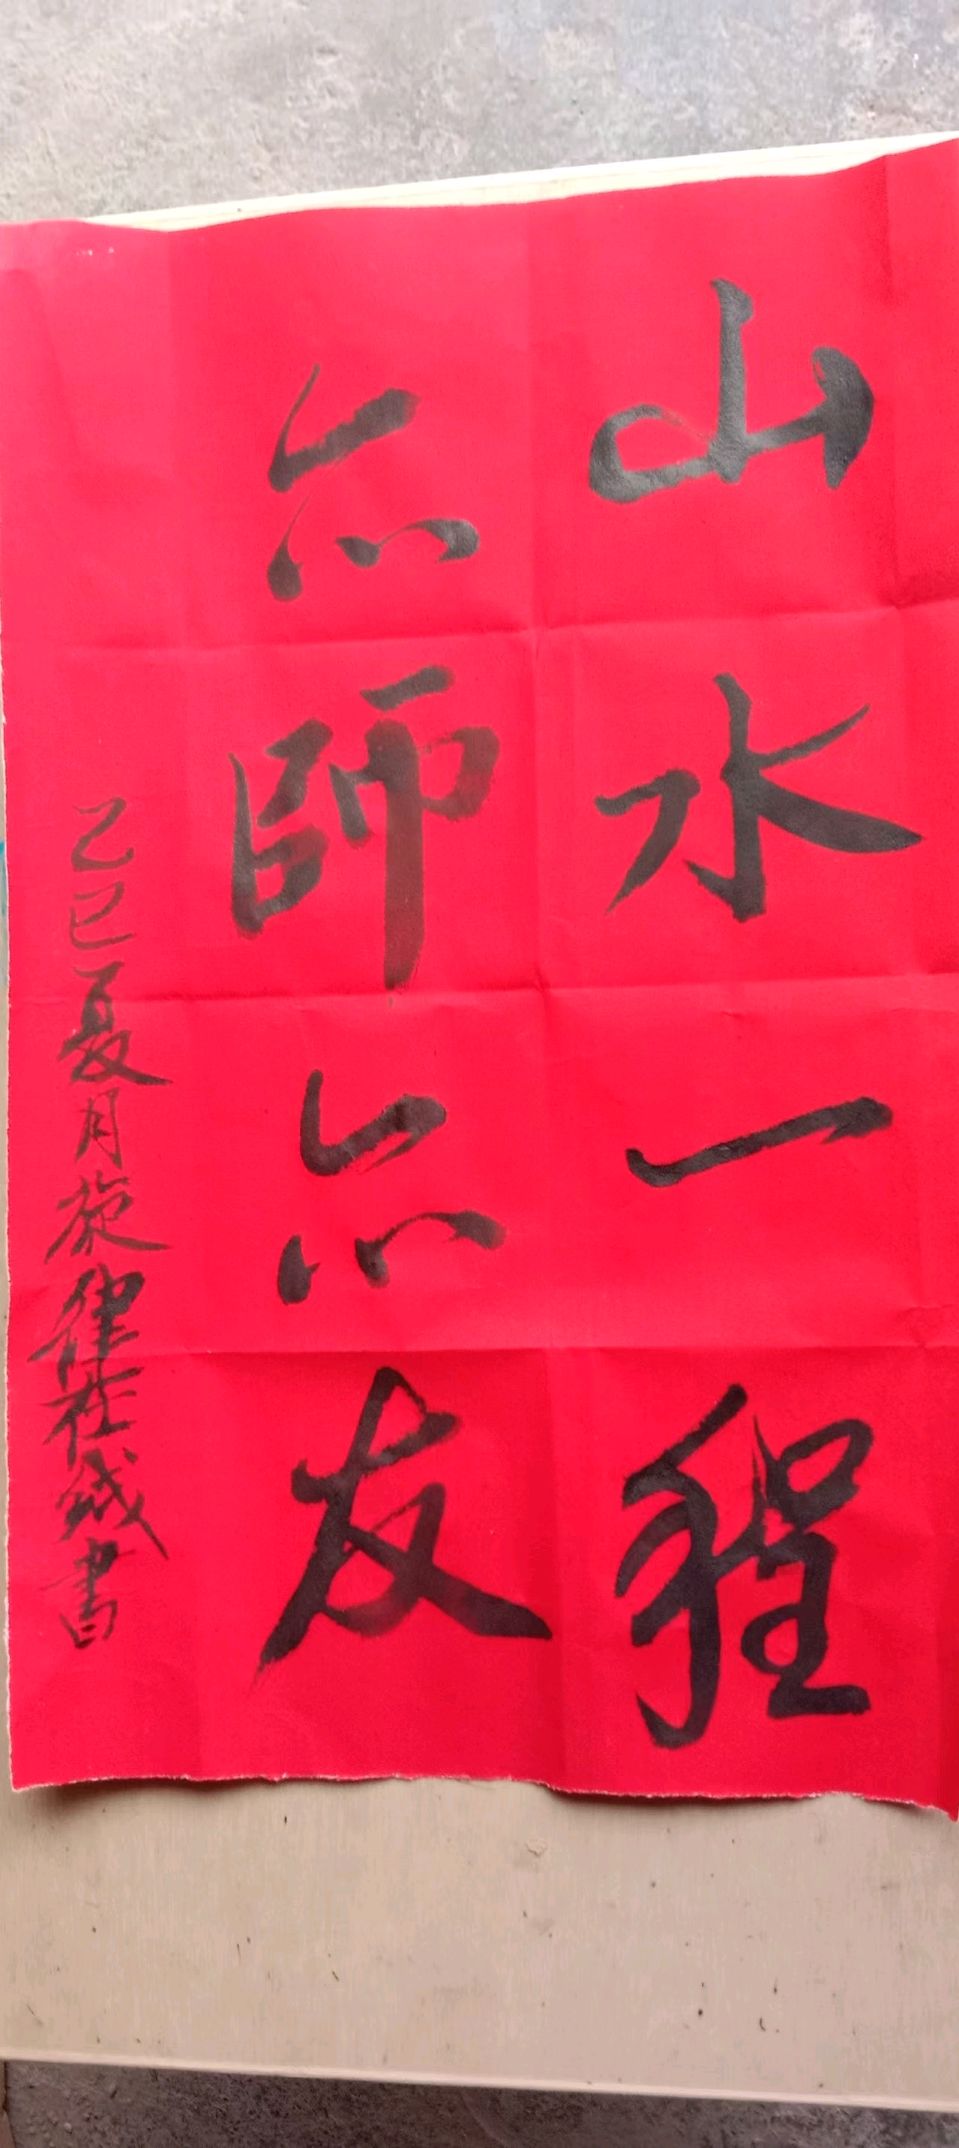 山水一程
亦師亦友
乙巳夏月旋律在城書